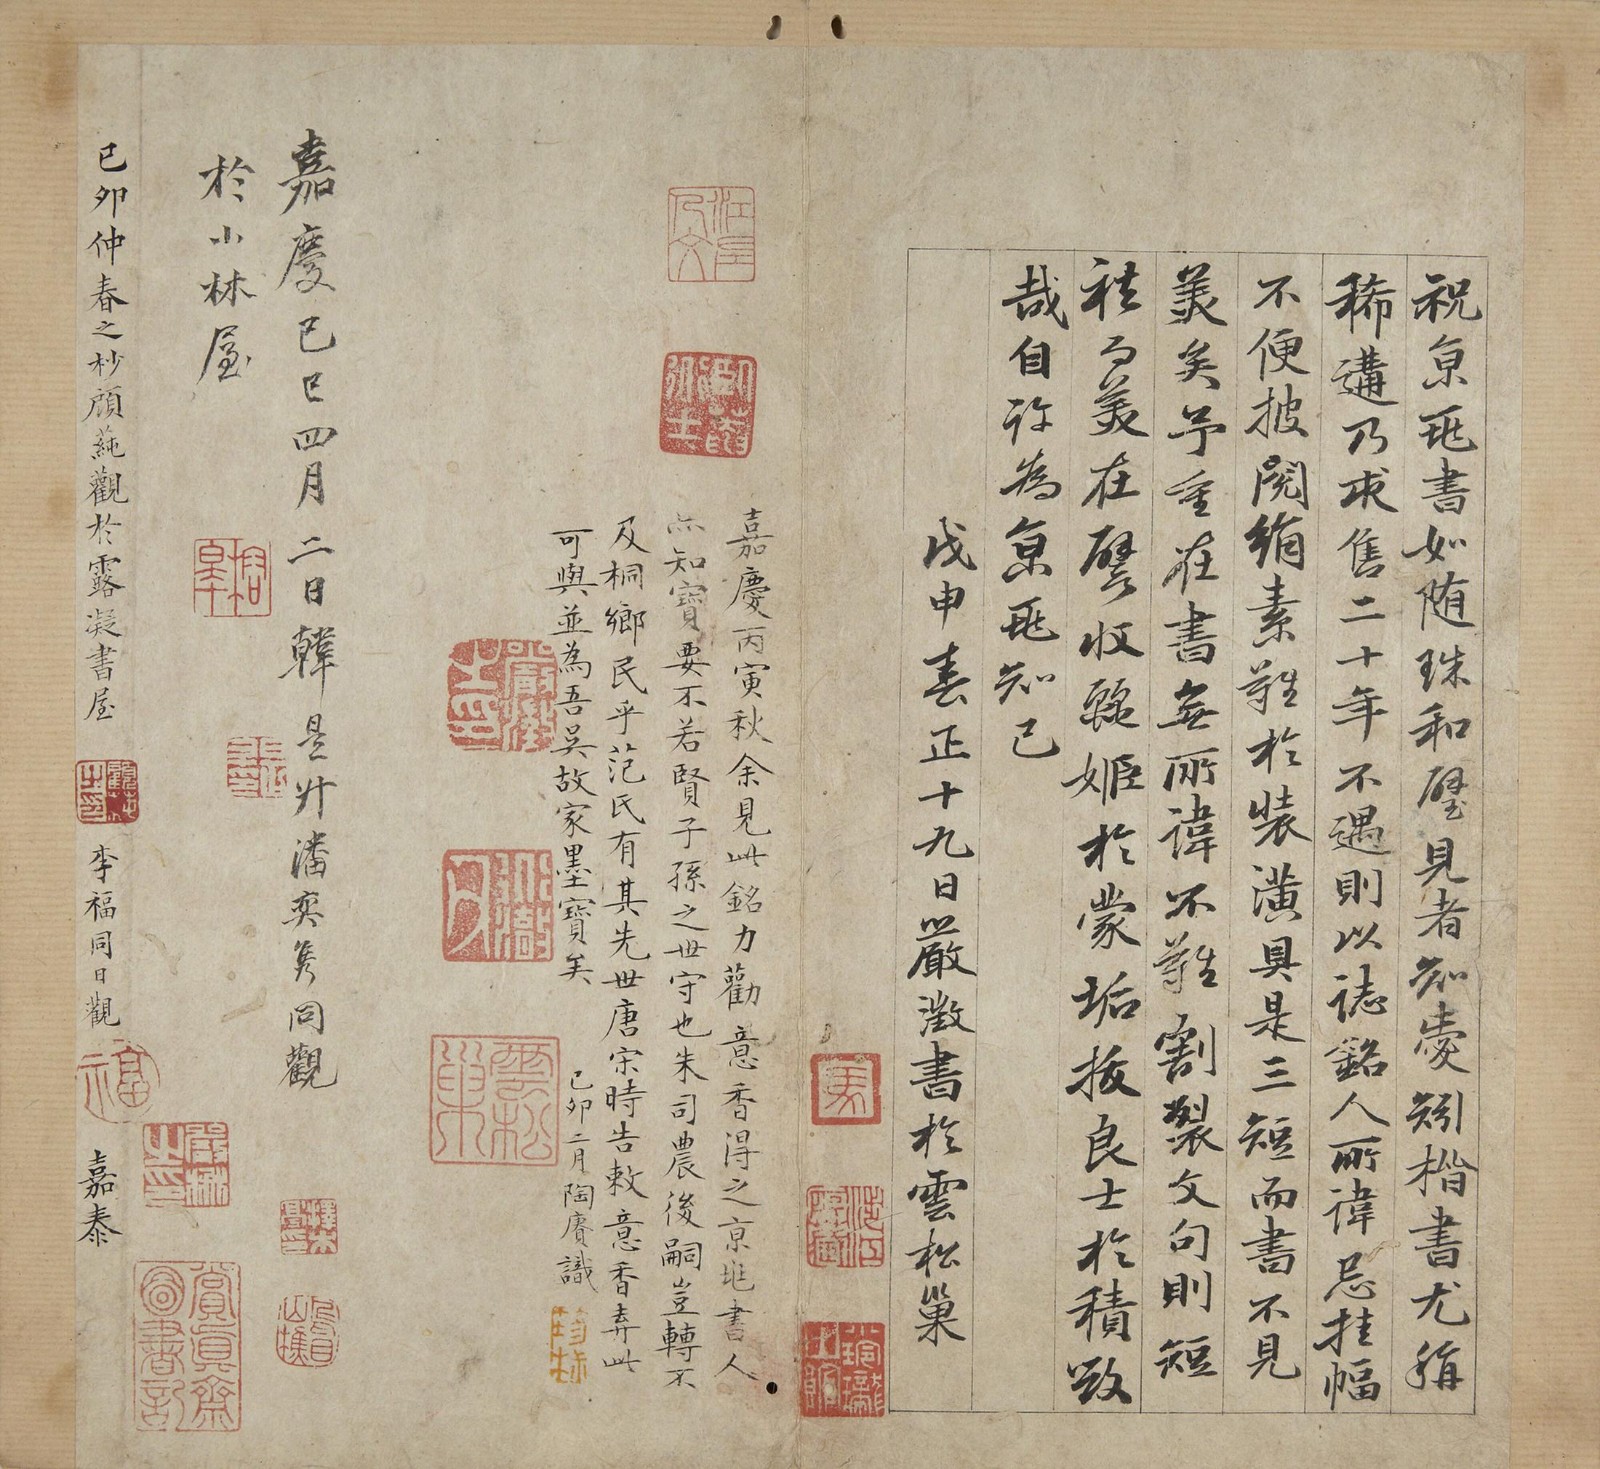 祝京兆書如隋珠和璧見者知愛矧楷書尤稱
稀遘乃求售二十年不遇則以誌銘人所諱忌挂幅
不便披閱絹素難於裝潢具是三短而書不見
美矣予重在書無所諱不難割裂文句則短
祛而美在譬收麗姬於蒙垢拔良士於積毀
哉自許為京兆知己
戊申春正十九日嚴澂書於雲松巢
嘉慶丙寅秋余見此銘力勸意香得之京兆書人
亦知寶要不若賢子孫之世守也朱司農後嗣豈轉不
及桐鄉民乎范氏有其先世唐宋時告敕意香弆此
可與並為吾吳故家墨寶矣
己卯二月陶賡識
嘉慶己巳四月二日韓是升潘奕雋同觀
於小林屋
己卯仲春之杪顧蒓觀於露凝書屋
李福同日觀
嘉泰
雲松巢
賞真齋圖書記